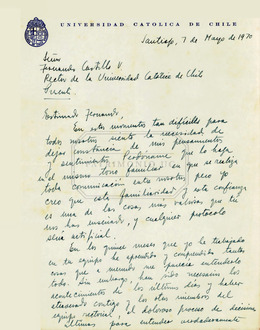 UNIVERSIDAD CATOLICA DE CHILE
Santiago, 7 de Mayo de 1970
Señor
Fernando Castillo V
Rector de la Universidad Catolica de Chile
Presente
Estimado Fernando,
En estos momentos tan difíciles para
todos nosotros siento la necesidad de
dejar constancia de mis pensamientos
y sentimientos. Perdoname que lo haga
en el mismo tono familiar en que se realiza
toda comunicación entre nosotros, pero yo
creo que esta familiaridad y esta confianza
es una de las cosas más valiosas que tú
nos has enseñado, y cualquier protocolo
sería artificial.
En los meses que yo he trabajado
en tu equipo he aprendido y comprendido tantas
cosas que a menudo me parecía entenderlo
todo. Sin embargo han sido necesarios los
acontecimientos de los últimos días y haber
contigo y los otros miembros del
equipo rectorial, el doloroso proceso de decisiones
últimas para entender verdaderamente